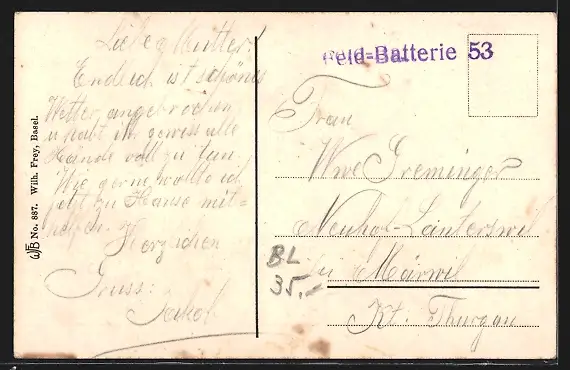 Liebe Mutter!
Endlich ist schönes
Wetter angebrochen
u habt ihr gewiss alle
Hände voll zu tun.
Wie gerne wollte ich
jetzt zu Hause mit=
helfen. Herzlichen
Gruss:
Jakob
WFB No. 887. Wilh. Frey, Basel.
Feld=Batterie 53
Frau
Wwe Greminger
Neuhof-Lanterswil
bei Märwil
Kt. Thurgau
BL
35.-